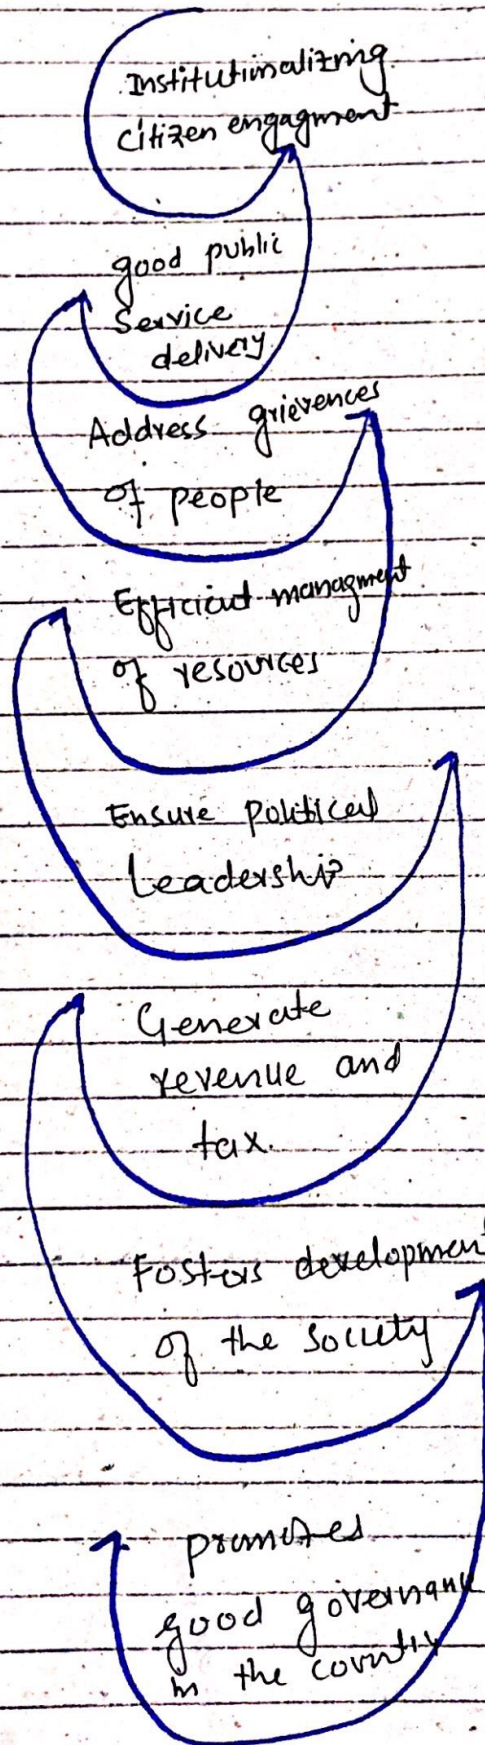 Institutionalizing
citizen engagment
good public
Service
delivery
Address grievences
of people
Efficient managment
of resources
Ensure political
Leadership
Generate
revenue and
tax.
Fosters development
of the society
promotes
good governance
in the country